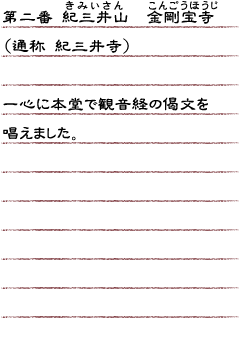 きみいさん こんごうほうじ
第二番 紀三井山 金剛宝寺
（通称 紀三井寺）
一心に本堂で観音経の偈文を
唱えました。